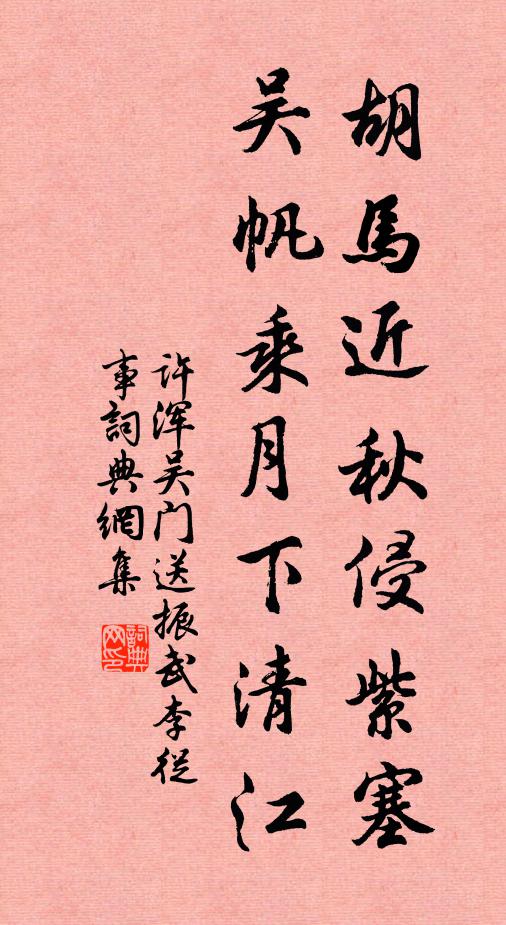 胡馬近秋侵紫塞
吴帆乘月下清江
许浑吴门送振武李從
事詞典網集
詞典网印